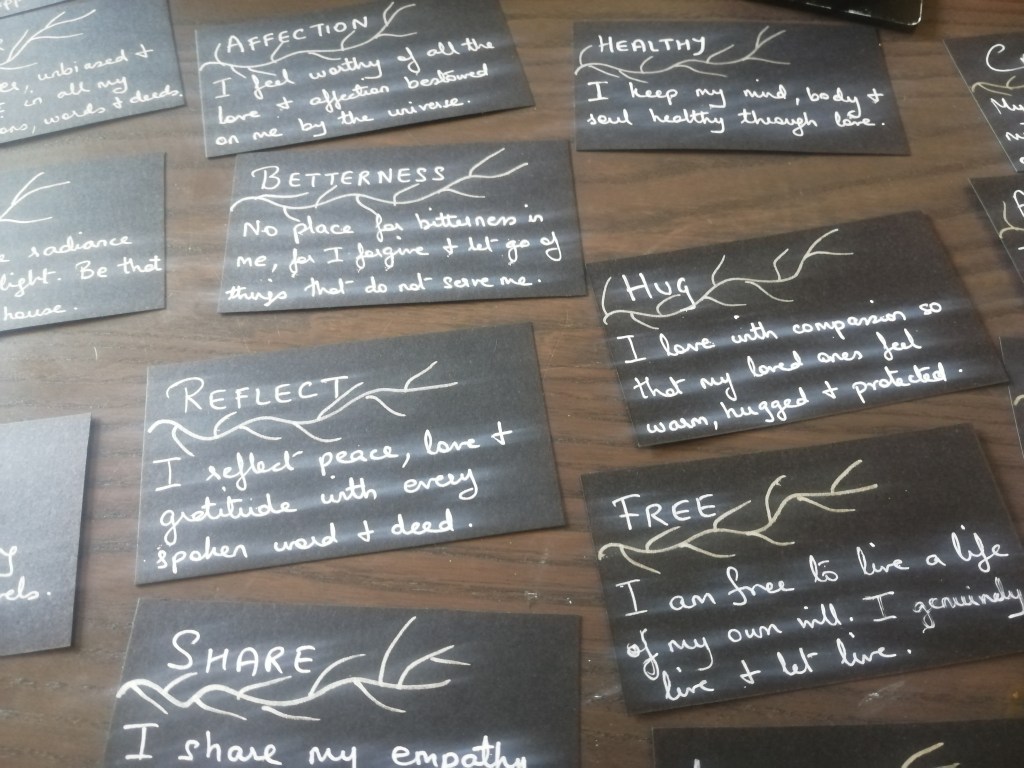 er, unbiased +
in all my
ons, words & deeds.
AFFECTION
I feel worthy of all the
love & affection bestowed
on me by the universe.
HEALTHY
I keep my mind, body &
soul healthy through love.
radiance
light. Be that
house.
BETTERNESS
No place for bitterness in
me, for I forgive & let go of
things that do not serve me.
HUG
I love with compassion so
that my loved ones feel
warm, hugged & protected.
REFLECT
I reflect peace, love +
gratitude with every
spoken word & deed.
FREE
I am free to live a life
of my own will. I genuinely
live & let live.
SHARE
I share my empathy